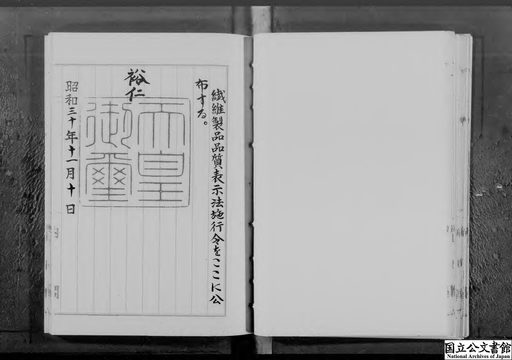 繊維製品品質表示法施行令をここに公
布する。
裕仁
天皇
御璽
昭和三十年十一月十日
国立公文書館
National Archives of Japan